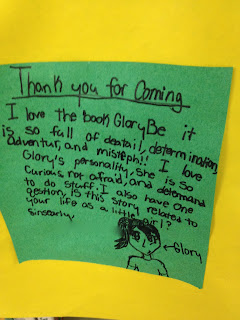 Thank you for Coming
I love the book GloryBe it
is so full of deatail, determination,
adventur, and misteph!! I love
Glory's personality. She is so
Curious, not afraid, and determand
to do stuff. I also have one
qestion, is this story related to
your life as a little girl?
Sinsearly,
←Glory